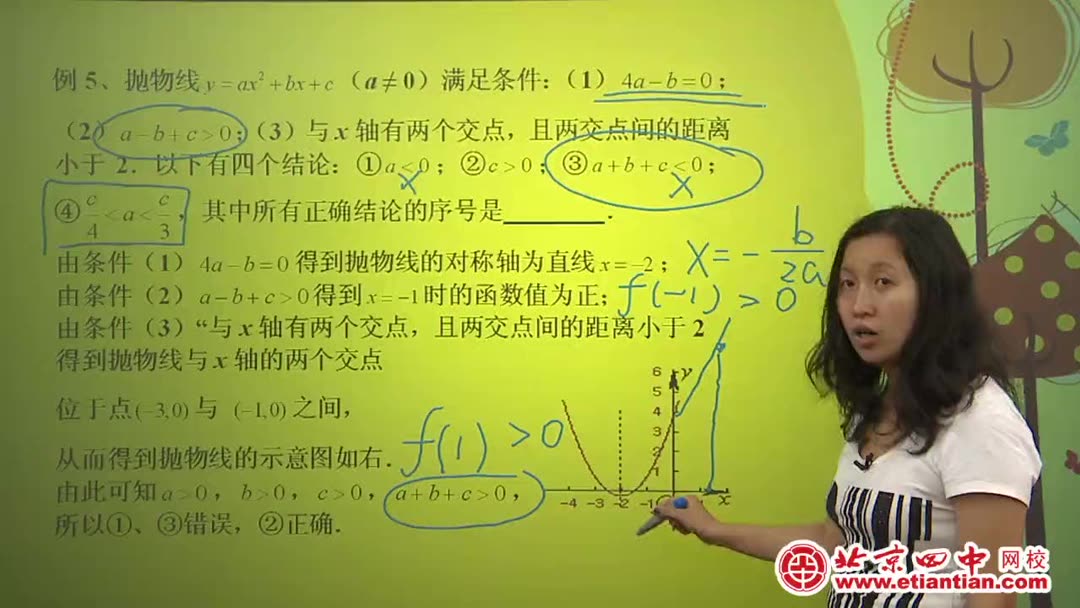 例 5、抛物线 y = ax² + bx + c （a ≠ 0）满足条件：（1） 4a − b = 0；
（2） a − b + c > 0；（3）与 x 轴有两个交点，且两交点间的距离
小于 2．以下有四个结论：① a < 0；② c > 0；③ a + b + c < 0；
④ c/4 < a < c/3，其中所有正确结论的序号是________．
由条件（1） 4a − b = 0 得到抛物线的对称轴为直线 x = −2；
x = − b/2a
由条件（2） a − b + c > 0 得到 x = −1 时的函数值为正；
f(−1) > 0
由条件（3）“与 x 轴有两个交点，且两交点间的距离小于 2
得到抛物线与 x 轴的两个交点
位于点 (−3,0) 与 (−1,0) 之间，
f(1) > 0
从而得到抛物线的示意图如右．
由此可知 a > 0， b > 0， c > 0， a + b + c > 0，
所以①、③错误，②正确．
6 y
5
4
3
1
−4 −3 −2 −1 x
北京四中 网校
www.etiantian.com